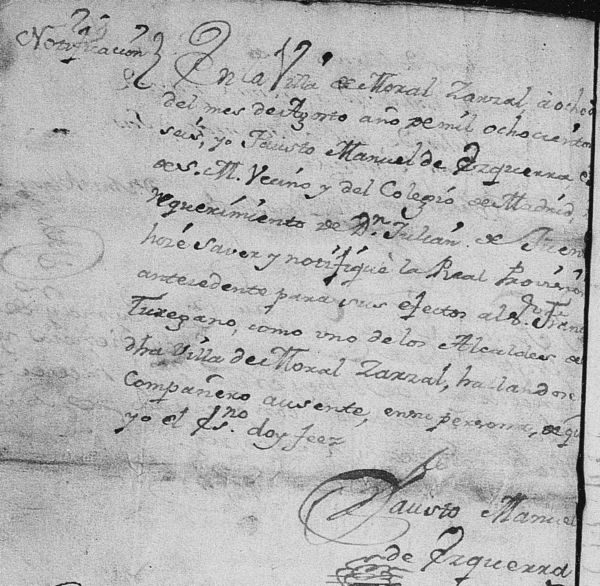 Notificacion
En la Villa de Moral Zarzal, à ocho
del mes de Agosto año de mil ochocientos
seis, yo Fausto Manuel de Yzquerra
de S. M. Vecino y del Colegio de Madrid,
requerimiento de Dn. Julian de
hoze saver y notifiquè la Real Provision
antecedente para sus efectos al Sr. Franco
Turegano, como uno de los Alcaldes de
dha Villa de Moral Zarzal, hallandose
Compañero ausente, en su persona, de que
yo el Esno. doy fee
Fausto Manuel
de Yzquerra